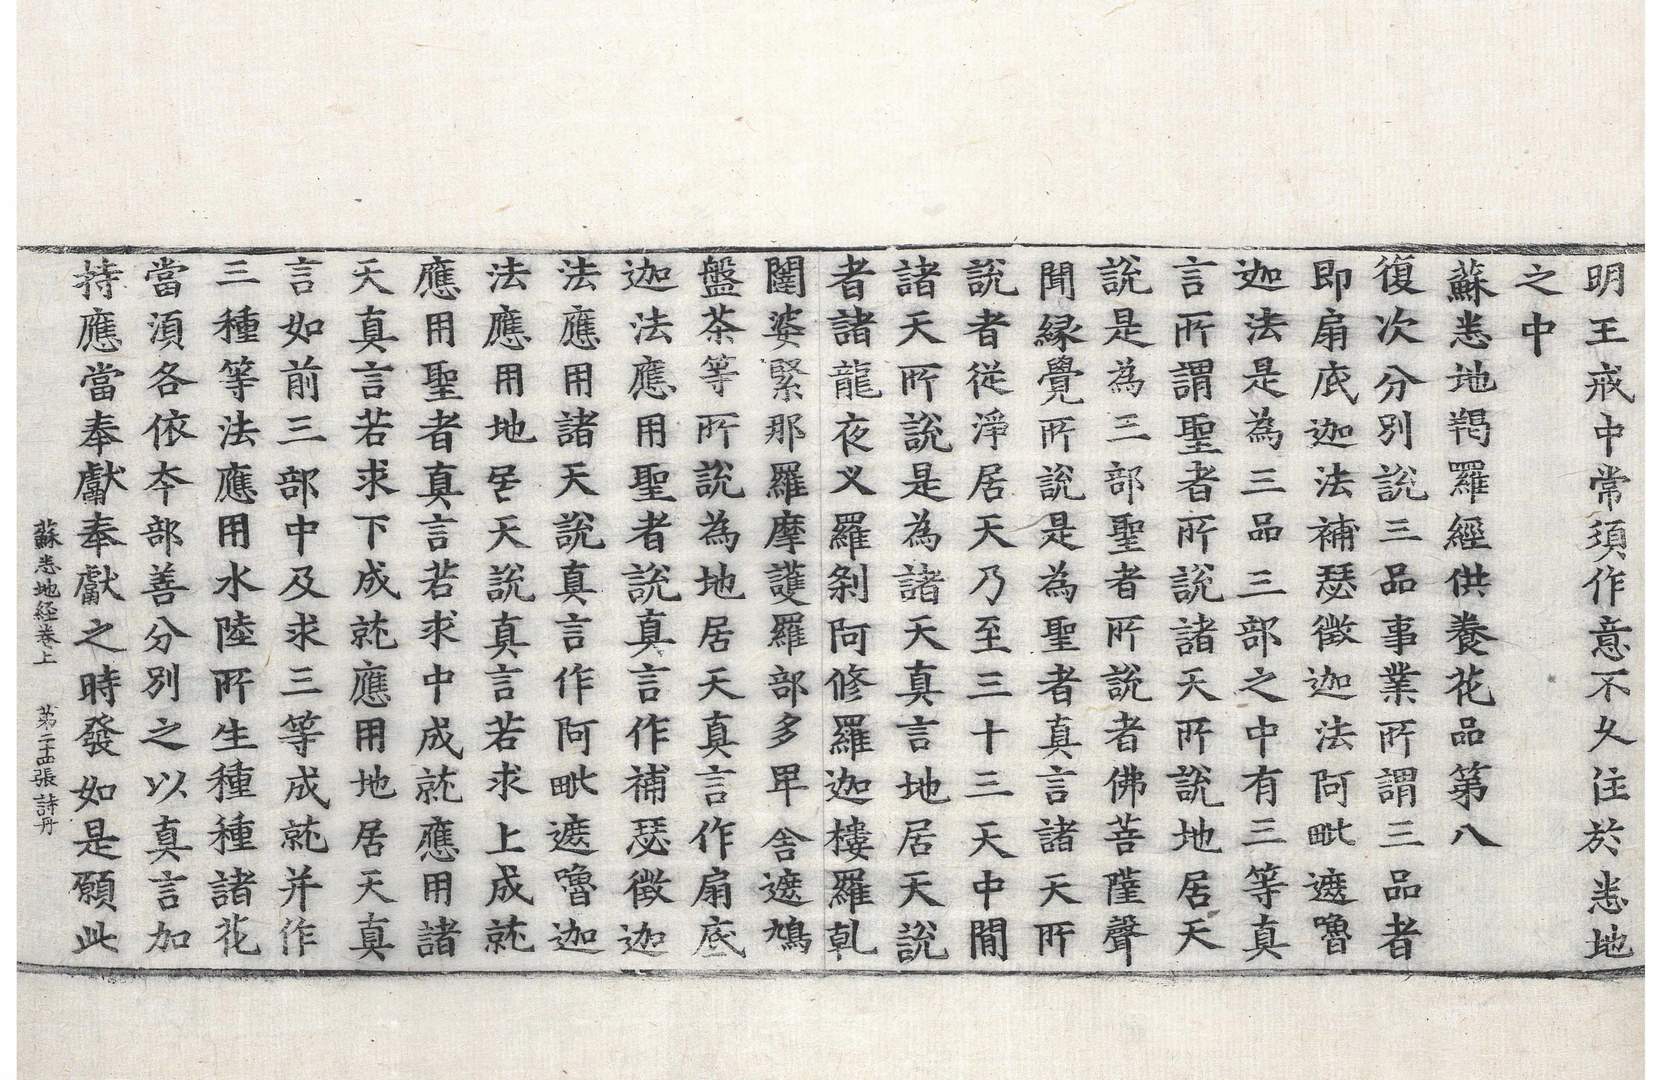 明王戒中常須作意不久住於悉地
之中
蘇悉地羯羅經供養花品第八
復次分別說三品事業所謂三品者
即扇底迦法補瑟徵迦法阿毗遮嚕
迦法是為三品三部之中有三等真
言所謂聖者所說諸天所說地居天
說是為三部聖者所說者佛菩薩聲
聞縁覺所說是為聖者真言諸天所
說者從淨居天乃至三十三天中間
諸天所說是為諸天真言地居天說
者諸龍夜叉羅剎阿修羅迦樓羅乹
闥婆緊那羅摩護羅部多畢舍遮鳩
盤茶等所說為地居天真言作扇底
迦法應用聖者說真言作補瑟徵迦
法應用諸天說真言作阿毗遮嚕迦
法應用地居天說真言若求上成就
應用聖者真言若求中成就應用諸
天真言若求下成就應用地居天真
言如前三部中及求三等成就并作
三種等法應用水陸所生種種諸花
當須各依夲部善分別之以真言加
持應當奉獻奉獻之時發如是願此
蘇悉地経卷上 第二十四張 詩丹